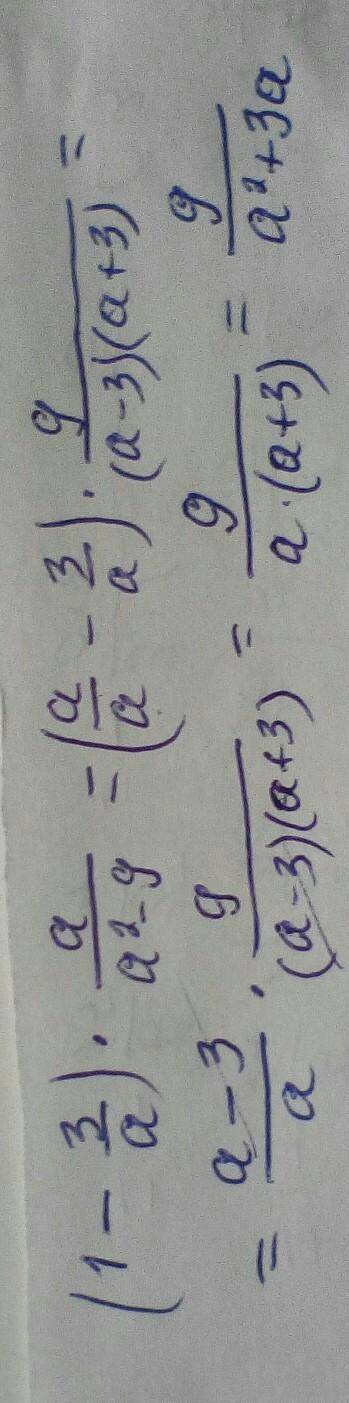 (1 - 3/a) · a/(a² - 9) = (a/a - 3/a) · 9/((a-3)(a+3)) =
= (a-3)/a · 9/((a-3)(a+3)) = 9/(a·(a+3)) = 9/(a²+3a)